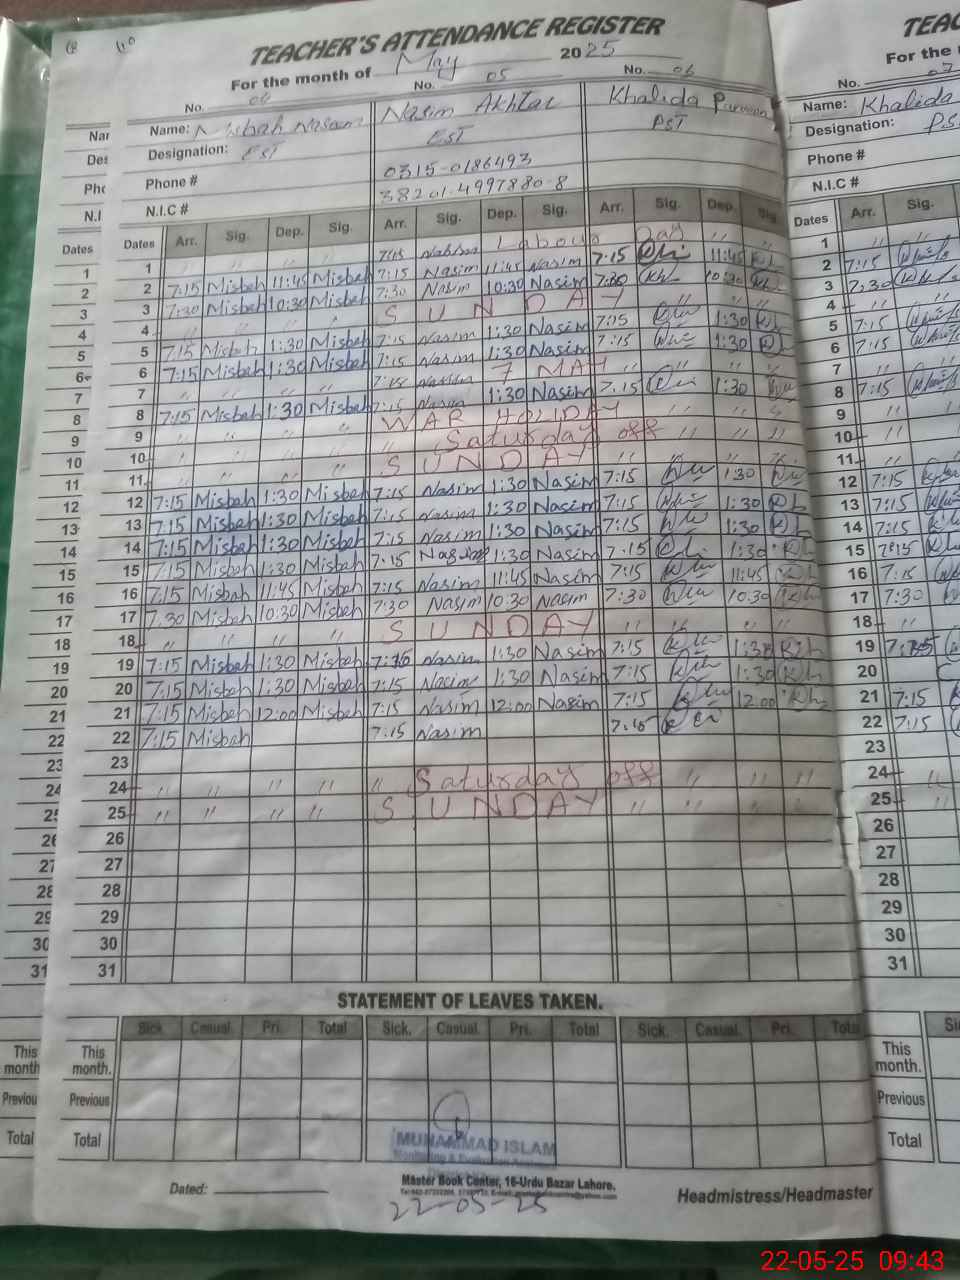 TEACHER'S ATTENDANCE REGISTER
For the month of May 2025
No. No. 05 No. 06
Name: Misbah Nasim Nasim Akhtar Khalida Parveen
Designation: EST EST PST
Phone # 0315-0186493
N.I.C # 38201-4997880-8
Dates Arr. Sig. Dep. Sig. Arr. Sig. Dep. Sig. Arr. Sig. Dep. Sig.
1 " " 7:15 Labour Day " "
2 7:15 Misbah 11:45 Misbah 7:15 Nasim 11:45 Nasim 7:15 11:45
3 7:30 Misbah 10:30 Misbah 7:30 Nasim 10:30 Nasim 7:30 Kh 10:30 Kh
4 " " " " SUNDAY " " "
5 7:15 Misbah 1:30 Misbah 7:15 Nasim 1:30 Nasim 7:15 1:30
6 7:15 Misbah 1:30 Misbah 7:15 Nasim 1:30 Nasim 7:15 1:30
7 " " " " 7:15 7 MAY " " "
8 7:15 Misbah 1:30 Misbah 7:15 Nasim 1:30 Nasim 7:15 1:30
9 " " " " WAR HOLIDAY " " "
10 " " " " Saturday off " " "
11 " " " " SUNDAY " " "
12 7:15 Misbah 1:30 Misbah 7:15 Nasim 1:30 Nasim 7:15 1:30
13 7:15 Misbah 1:30 Misbah 7:15 Nasim 1:30 Nasim 7:15 1:30 Kh
14 7:15 Misbah 1:30 Misbah 7:15 Nasim 1:30 Nasim 7:15 1:30 Kh
15 7:15 Misbah 1:30 Misbah 7:15 Nasim 1:30 Nasim 7:15 1:30 Kh
16 7:15 Misbah 11:45 Misbah 7:15 Nasim 11:45 Nasim 7:15 11:45 Kh
17 7:30 Misbah 10:30 Misbah 7:30 Nasim 10:30 Nasim 7:30 10:30 Kh
18 " " " " SUNDAY " " " "
19 7:15 Misbah 1:30 Misbah 7:15 Nasim 1:30 Nasim 7:15 1:30 Kh
20 7:15 Misbah 1:30 Misbah 7:15 Nasim 1:30 Nasim 7:15 1:30 Kh
21 7:15 Misbah 12:00 Misbah 7:15 Nasim 12:00 Nasim 7:15 12:00 Kh
22 7:15 Misbah 7:15 Nasim 7:15
23
24 " " " " " Saturday off " " "
25 " " " " SUNDAY " " " "
26
27
28
29
30
31
STATEMENT OF LEAVES TAKEN.
Sick. Casual. Pri. Total Sick. Casual. Pri. Total Sick. Casual. Pri. Total
This month.
Previous
Total
MUHAMMAD ISLAM
Dated:
Master Book Center, 16-Urdu Bazar Lahore.
22-05-25
Headmistress/Headmaster
For the
No. 07
Name: Khalida
Designation: PS
Phone #
N.I.C #
Dates Arr. Sig.
1 " "
2 7:15
3 7:30
4 " "
5 7:15
6 7:15
7 " "
8 7:15
9 " "
10 " "
11 "
12 7:15
13 7:15
14 7:15
15 7:15
16 7:15
17 7:30
18 "
19
20
21 7:15
22 7:15
23
24 "
25 "
26
27
28
29
30
31
This month.
Previous
Total
Dates
1
2
3
4
5
6
7
8
9
10
11
12
13
14
15
16
17
18
19
20
21
22
23
24
This month
Total
22-05-25 09:43